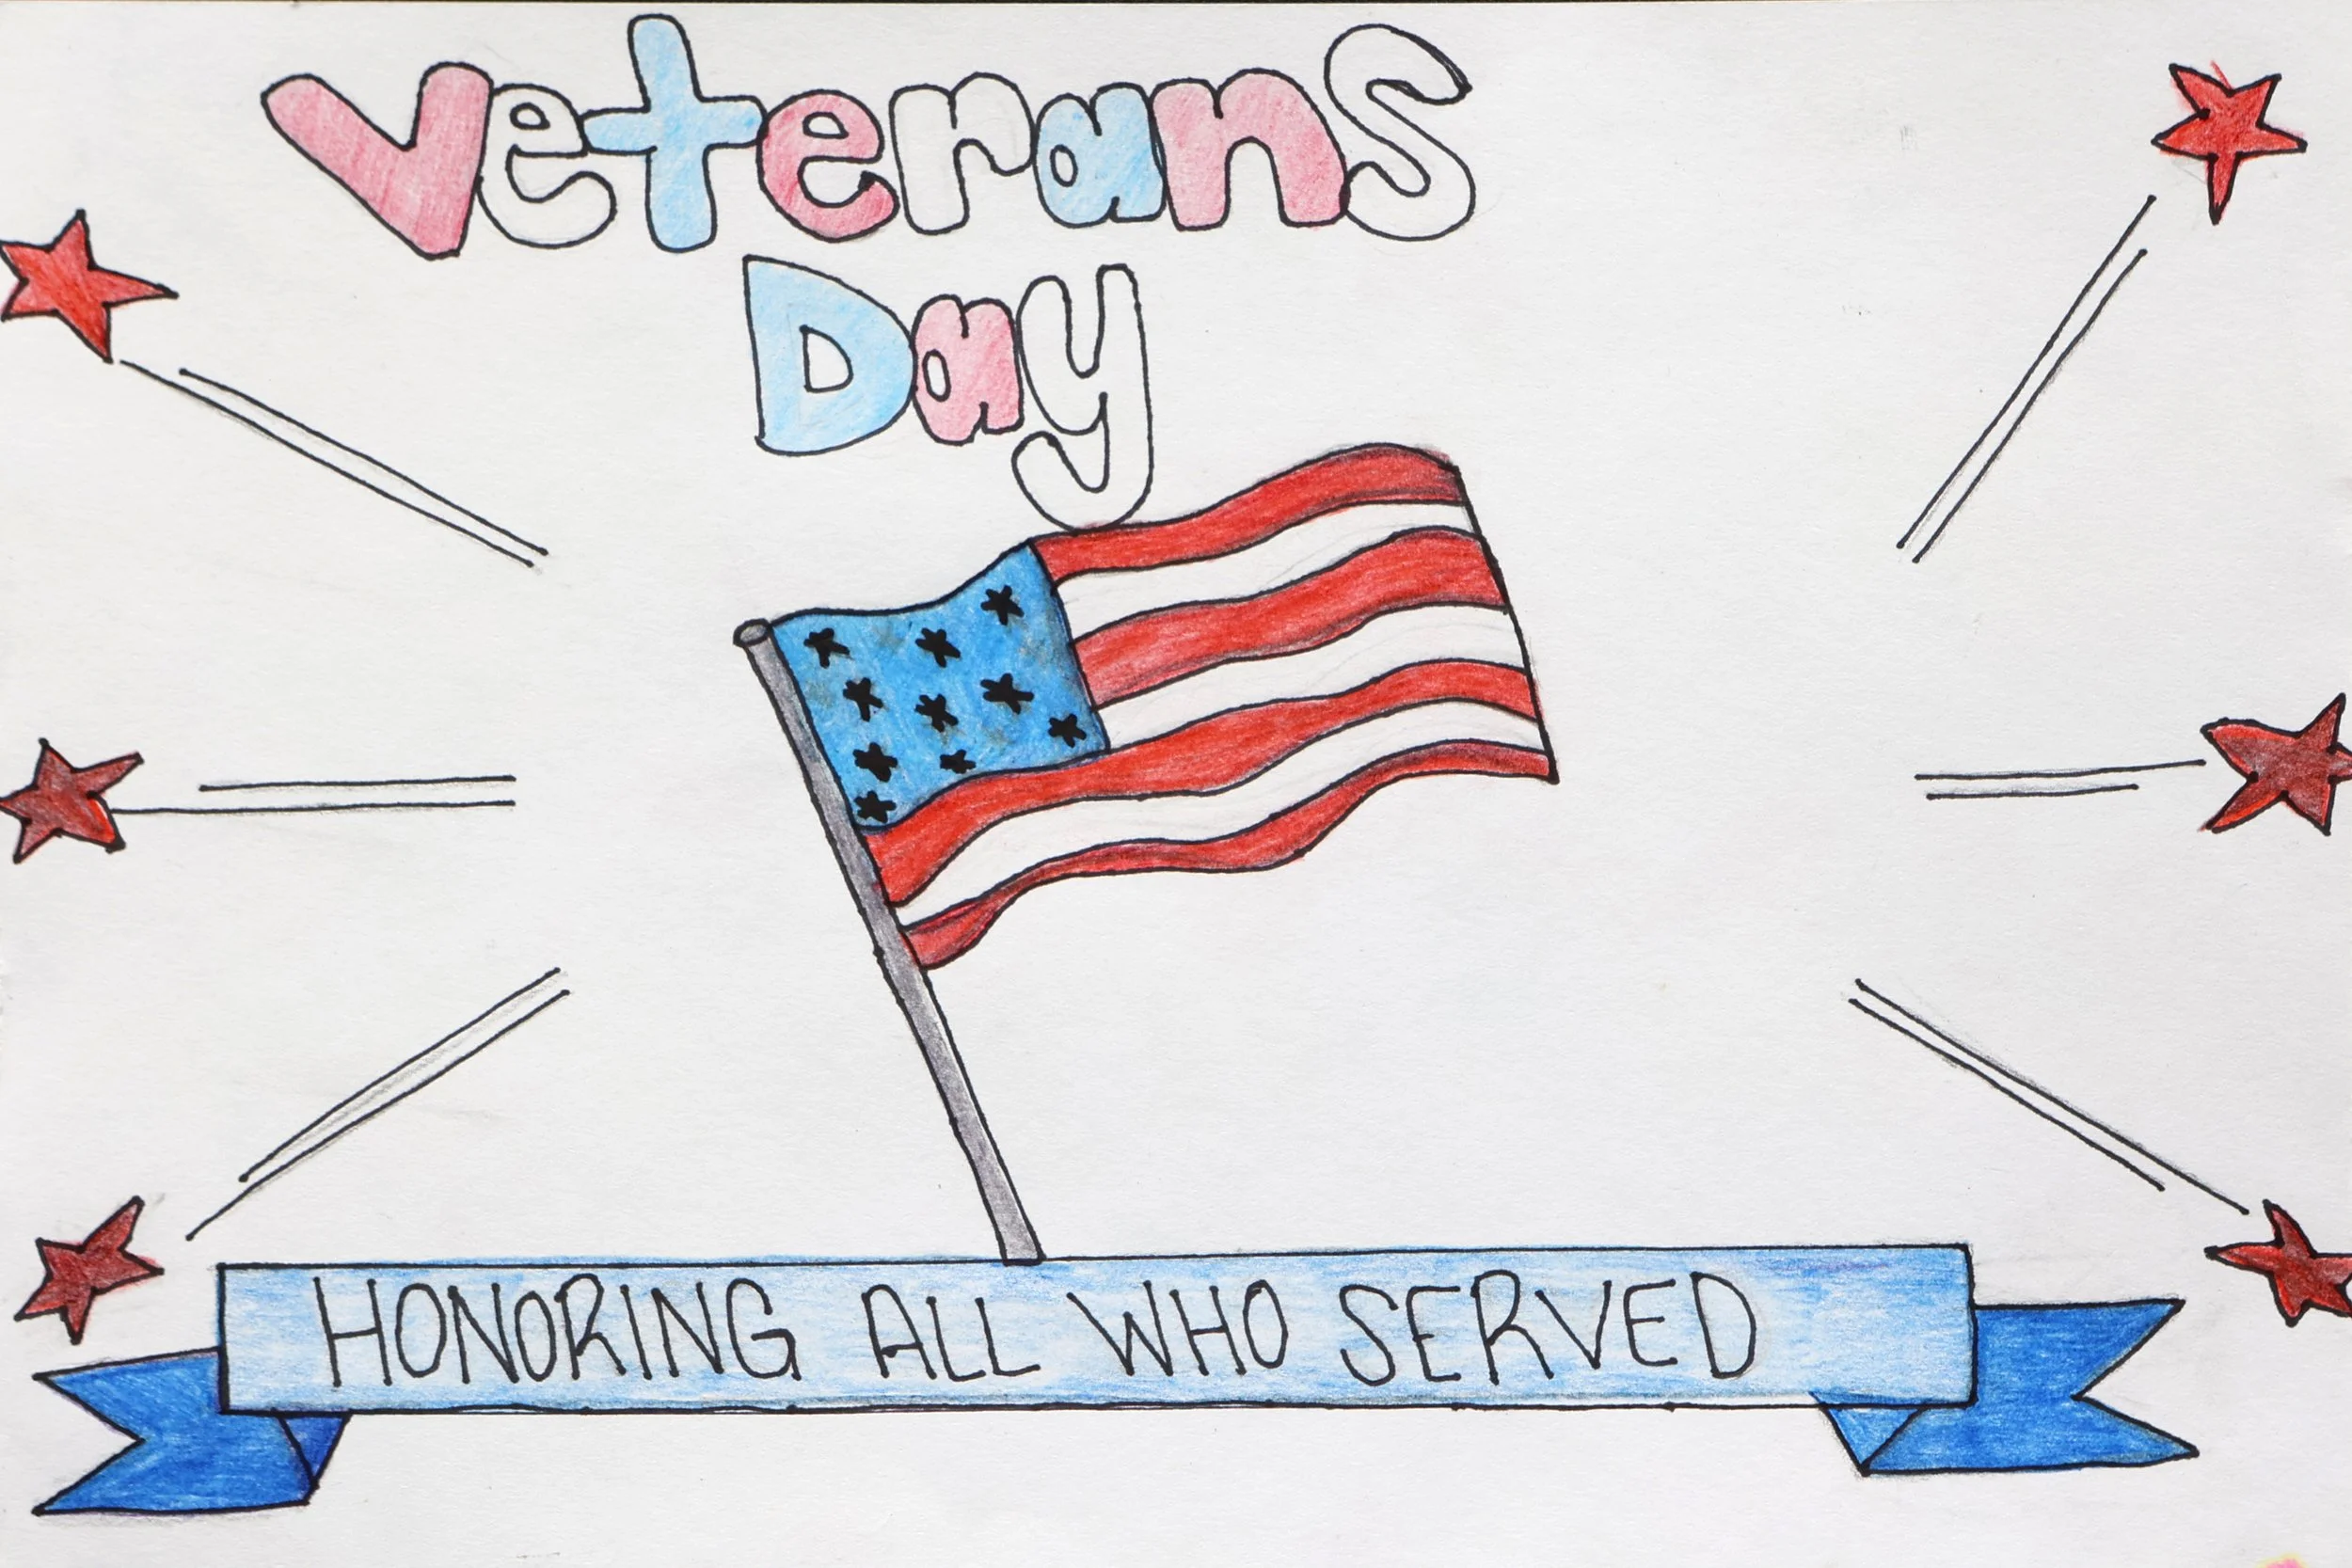 Veterans
Day
HONORING ALL WHO SERVED